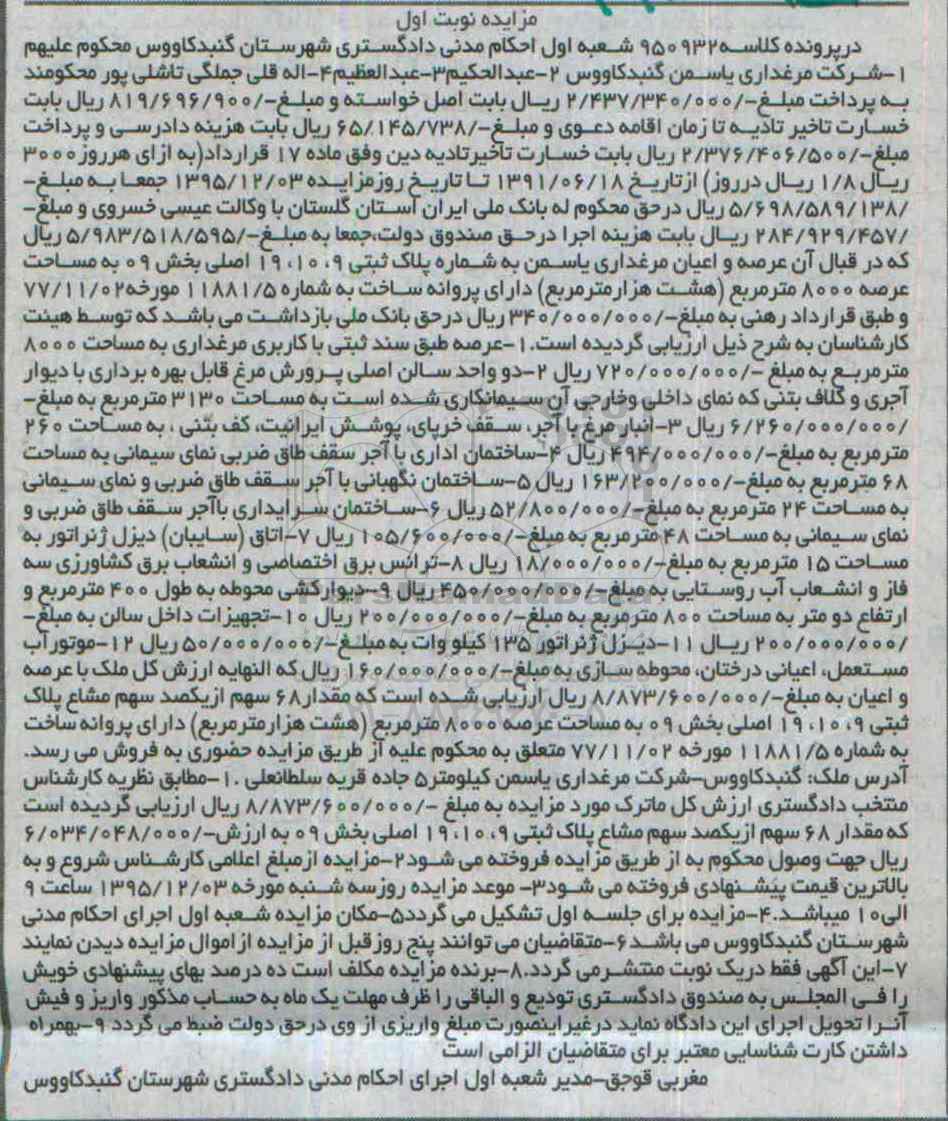 مزایده نوبت اول
درپرونده کلاسه۹۵۰۹۳۲ شعبه اول احکام مدنی دادگستری شهرستان گنبدکاووس محکوم علیهم
۱-شرکت مرغداری یاسمن گنبدکاووس ۲-عبدالحکیم۳-عبدالعظیم۴-اله قلی جملگی تاشلی پور محکومند
به پرداخت مبلغ-/۲/۴۳۷/۳۴۰/۰۰۰ ریال بابت اصل خواسته و مبلغ-/۸۱۹/۶۹۶/۹۰۰ ریال بابت
خسارت تاخیر تادیه تا زمان اقامه دعوی و مبلغ-/۶۵/۱۴۵/۷۳۸ ریال بابت هزینه دادرسی و پرداخت
مبلغ-/۲/۳۷۶/۴۰۶/۵۰۰ ریال بابت خسارت تاخیرتادیه دین وفق ماده ۱۷ قرارداد(به ازای هرروز۳۰۰۰
ریال ۱/۸ ریال درروز) ازتاریخ ۱۳۹۱/۰۶/۱۸ تا تاریخ روزمزایده ۱۳۹۵/۱۲/۰۳ جمعا به مبلغ-
/۵/۶۹۸/۵۸۹/۱۳۸ ریال درحق محکوم له بانک ملی ایران استان گلستان با وکالت عیسی خسروی و مبلغ-
/۲۸۴/۹۲۹/۴۵۷ ریال بابت هزینه اجرا درحق صندوق دولت،جمعا به مبلغ-/۵/۹۸۳/۵۱۸/۵۹۵ ریال
که در قبال آن عرصه و اعیان مرغداری یاسمن به شماره پلاک ثبتی ۹، ۱۰، ۱۹ اصلی بخش ۰۹ به مساحت
عرصه ۸۰۰۰ مترمربع (هشت هزارمترمربع) دارای پروانه ساخت به شماره ۱۱۸۸۱/۵ مورخه۷۷/۱۱/۰۲
و طبق قرارداد رهنی به مبلغ-/۳۴۰/۰۰۰/۰۰۰ ریال درحق بانک ملی بازداشت می باشد که توسط هیئت
کارشناسان به شرح ذیل ارزیابی گردیده است.۱-عرصه طبق سند ثبتی با کاربری مرغداری به مساحت ۸۰۰۰
مترمربع به مبلغ -/۷۲۰/۰۰۰/۰۰۰ ریال ۲-دو واحد سالن اصلی پرورش مرغ قابل بهره برداری با دیوار
آجری و کلاف بتنی که نمای داخلی وخارجی آن سیمانکاری شده است به مساحت ۳۱۳۰ مترمربع به مبلغ-
/۶/۲۶۰/۰۰۰/۰۰۰ ریال ۳-انبار مرغ با آجر، سقف خرپای، پوشش ایرانیت، کف بتنی ، به مساحت ۲۶۰
مترمربع به مبلغ-/۴۹۴/۰۰۰/۰۰۰ ریال ۴-ساختمان اداری با آجر سقف طاق ضربی نمای سیمانی به مساحت
۶۸ مترمربع به مبلغ-/۱۶۳/۲۰۰/۰۰۰ ریال ۵-ساختمان نگهبانی با آجر سقف طاق ضربی و نمای سیمانی
به مساحت ۲۴ مترمربع به مبلغ-/۵۲/۸۰۰/۰۰۰ ریال ۶-ساختمان سرایداری باآجر سقف طاق ضربی و
نمای سیمانی به مساحت ۴۸ مترمربع به مبلغ-/۱۰۵/۶۰۰/۰۰۰ ریال ۷-اتاق (سایبان) دیزل ژنراتور به
مساحت ۱۵ مترمربع به مبلغ-/۱۸/۰۰۰/۰۰۰ ریال ۸-ترانس برق اختصاصی و انشعاب برق کشاورزی سه
فاز و انشعاب آب روستایی به مبلغ-/۴۵۰/۰۰۰/۰۰۰ ریال ۹-دیوارکشی محوطه به طول ۴۰۰ مترمربع و
ارتفاع دو متر به مساحت ۸۰۰ مترمربع به مبلغ-/۲۰۰/۰۰۰/۰۰۰ ریال ۱۰-تجهیزات داخل سالن به مبلغ-
/۲۰۰/۰۰۰/۰۰۰ ریال ۱۱-دیزل ژنراتور ۱۳۵ کیلو وات به مبلغ-/۵۰/۰۰۰/۰۰۰ ریال ۱۲-موتورآب
مستعمل، اعیانی درختان، محوطه سازی به مبلغ-/۱۶۰/۰۰۰/۰۰۰ ریال که النهایه ارزش کل ملک با عرصه
و اعیان به مبلغ-/۸/۸۷۳/۶۰۰/۰۰۰ ریال ارزیابی شده است که مقدار۶۸ سهم ازیکصد سهم مشاع پلاک
ثبتی ۹، ۱۰، ۱۹ اصلی بخش ۰۹ به مساحت عرصه ۸۰۰۰ مترمربع (هشت هزارمترمربع) دارای پروانه ساخت
به شماره ۱۱۸۸۱/۵ مورخه ۷۷/۱۱/۰۲ متعلق به محکوم علیه از طریق مزایده حضوری به فروش می رسد.
آدرس ملک: گنبدکاووس-شرکت مرغداری یاسمن کیلومتر۵ جاده قریه سلطانعلی .۱-مطابق نظریه کارشناس
منتخب دادگستری ارزش کل ماترک مورد مزایده به مبلغ -/۸/۸۷۳/۶۰۰/۰۰۰ ریال ارزیابی گردیده است
که مقدار ۶۸ سهم ازیکصد سهم مشاع پلاک ثبتی ۹، ۱۰، ۱۹ اصلی بخش ۰۹ به ارزش-/۶/۰۳۴/۰۴۸/۰۰۰
ریال جهت وصول محکوم به از طریق مزایده فروخته می شود۲-مزایده ازمبلغ اعلامی کارشناس شروع و به
بالاترین قیمت پیشنهادی فروخته می شود۳- موعد مزایده روزسه شنبه مورخه ۱۳۹۵/۱۲/۰۳ ساعت ۹
الی۱۰ میباشد.۴-مزایده برای جلسه اول تشکیل می گردد۵-مکان مزایده شعبه اول اجرای احکام مدنی
شهرستان گنبدکاووس می باشد۶-متقاضیان می توانند پنج روزقبل از مزایده ازاموال مزایده دیدن نمایند
۷-این آگهی فقط دریک نوبت منتشرمی گردد.۸-برنده مزایده مکلف است ده درصد بهای پیشنهادی خویش
را فی المجلس به صندوق دادگستری تودیع و الباقی را ظرف مهلت یک ماه به حساب مذکور واریز و فیش
آنرا تحویل اجرای این دادگاه نماید درغیراینصورت مبلغ واریزی از وی درحق دولت ضبط می گردد ۹-بهمراه
داشتن کارت شناسایی معتبر برای متقاضیان الزامی است
مغربی قوجق-مدیر شعبه اول اجرای احکام مدنی دادگستری شهرستان گنبدکاووس